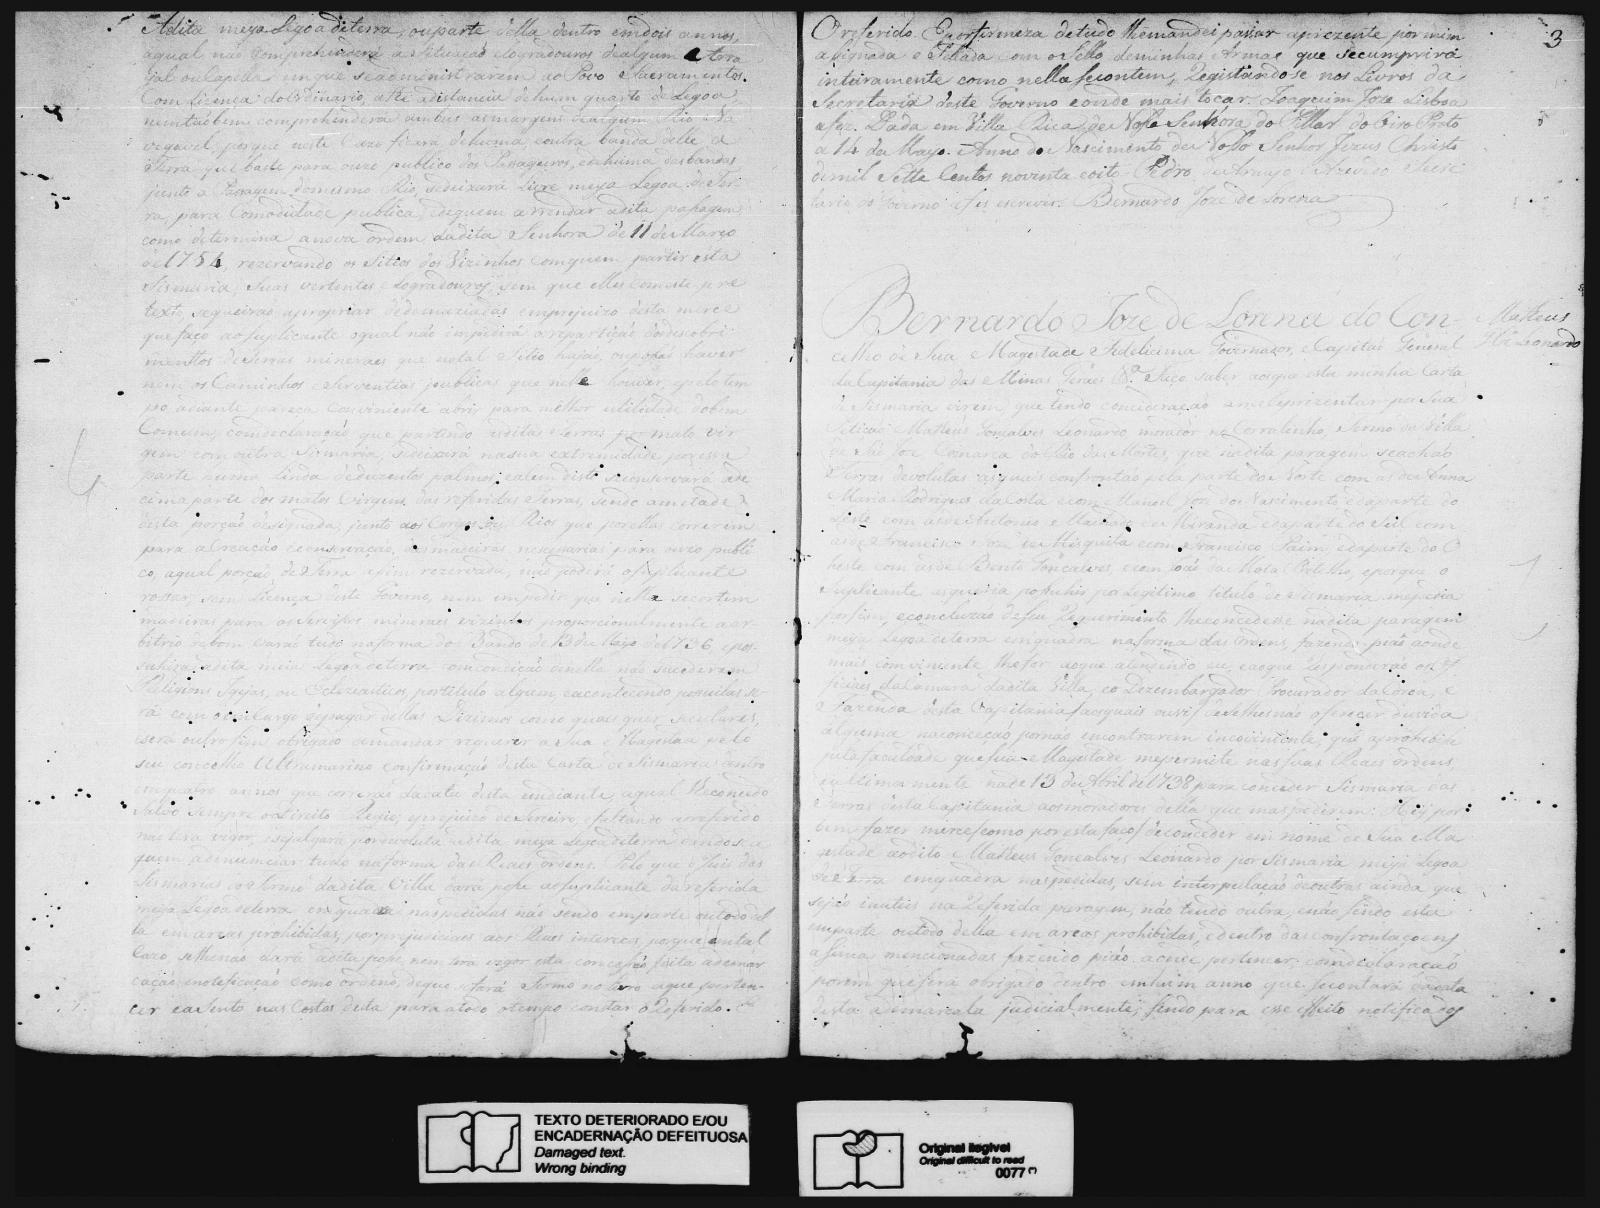 Adita meya Legoa deterra, ouparte della dentro emdois annos,
aqual não comprehenderá a situação elogradouros dealgum Arra
yal ou Capella em que se administrarem ao Povo Sacramentos.
Com licença do Ordinario, athé adistancia dehum quarto de Legoa
nemtaobem comprehenderá ambas asmargens dealgum Rio Na
vegavel, porque neste Cazo ficará de huma, eoutra banda delle a
Terra que baste para ouzo publico dos Passageiros, edehuma dasbandas
junto a Passagem domesmo Rio, sedeixará livre meya Legoa de Ter
ra, para Comodidade publica, edequem arrendar adita passagem
como determina anova ordem dadita Senhora de 11 de Março
de 1754, rezervando os Sitios dos Vizinhos comquem partir esta
Sismaria, suas vertentes, e Logradouros, sem que elles comeste pre
texto, sequeirão apropriar dedemaziadas emprejuizo desta merce
quefaço aoSuplicante oqual não impedirá arepartição dosdescobri
menttos deTerras mineraes que notal Sitio hajão, oupossão haver
nem os Caminhos e Serventias publicas que nelle houver, epelo tem
po adiante pareça conviniente abrir para milhor utilidade dobem
Comum, comdeclaração que partindo asditas Terras por mato vir
gem com outra Sismaria, sedeixará nasua extremidade poressa
parte huma linda deduzentos palmos, ealem disto seconservará ade
cima parte dos matos Virgens das referidas Terras, sendo ametade
desta porção designada, junto aos Corgos, ou Rios que porellas correrem
para aLreação econservação, das madeiras necessarias para ouzo publi
co, aqual porção de Terra assim rezervada, não poderá oSuplicante
rossar, sem Licença deste Governo, nem impedir que nella secortem
madeiras para osServiços mineraes vizinhos proporcionalmente aar
bitrio debom varão tudo naforma do Bando de 13 de Mayo de 1736 epos
suhirá adita meia Legoa deterra comcondição denella não sucederem
Religioens Igrejas, ou Eclezeasticos, portitulo algum, eacontecendo possuilas se
rá com oencargo depagar dellas Dizimos como quaes quer seculares,
eserá outro sim obrigado amandar requerer a Sua Magestade pelo
seu concelho Ultramarino confirmação desta Carta de Sismaria dentro
emquatro annos que correrão dadata desta emdiante, aqual lheconcedo
salvo sempre odireito Regio, eprejuizo de terceiro, efaltando aoreferido
não terá vigor, esejulgará pordevoluta adita meya Legoa deterra dandose a
quem adenunciar tudo naforma das Reaes ordens. Pelo que o Juiz das
Sismarias do Termo dadita Villa dará posse aoSuplicante dareferida
meya Legoa deterra em quadra naspedidas não sendo emparte outodo del
la emareas prohibidas, porprejudiciaes aos Reaes interesses, porque emtal
Cazo selhenão dará adita posse, nem terá vigor esta concessão feita ademar
cação, enotificação como ordeno, deque sefará Termo no livro aque perten-
cer eassento nas Costas desta para atodo otempo constar o Referido.
3
O referido. Eporfirmeza detudo lhemandei passar aprezente por mim
asignada e Sellada com oSello deminhas Armas que secumprirá
inteiramente como nella Secontem, Registandose nos Livros da
Secretaria deste Governo eonde mais tocar. Joaquim Joze Lisboa
afez. Dada em Villa Rica de Nossa Senhora do Pillar do Oiro Preto
a 14 de Mayo. Anno do Nascimento de Nosso Senhor Jezus Christo
demil Sette Centos noventa eoito. Pedro de Araujo e Azevedo Secre
tario do Governo afes escrever. Bernardo Joze de Lorena
Matheus
Glz Leonardo
Bernardo Joze de Lorena do Con-
celho de Sua Magestade Fidelicima Governador, e Capitão General
da Capitania das Minas Geraes &a. Faço saber aosque esta minha Carta
de Sismaria virem, que tendo concideração amereprezentar por Sua
Petição Matheus Gonçalves Leonardo morador no Corralinho, Termo da Villa
de São Joze Comarca do Rio das Mortes, que nadita paragem seachão
Terras devolutas asquais confrontão pela parte do Norte com as de Anna
Maria Rodrigues da Costa ecom Manoel Joze do Nascimento edaparte do
Leste com asde Antonio Machado de Miranda edaparte do Sul com
asde Francisco Joze de Misquita ecom Francisco Paim, edaparte do O
heste com asde Bento Gonçalves, ecom João da Mota Botelho, eporque o
Suplicante asqueria possuhir por legitimo titulo de Sismaria mepedia
porfim, econcluzão deseu Requerimento lheconcedesse nadita paragem
meya Legoa deterra emquadra naforma das Ordens, fazendo pião aonde
mais conviniente lhefor aoque atendendo eu, eaoque Responderão os Of
ficiaes da Camara dadita Villa, eo Dezembargador Procurador da Coroa, e
Fazenda desta Capitania (aosquais ouvi) deselhesnão oferecer duvida
alguma naconceção pornão encontrarem inconveniente, que aprohibisse
pela faculdade que Sua Magestade mepermite nassuas Reaes ordens,
eultimamente nade 13 de Abril de 1738 para conceder Sismaria das
Terras desta Capitania aosmoradores della que maspedirem: Hey por
bem fazer merce (como por esta faço) deconceder em nome de Sua Ma
gestade aodito Matheus Gonçalves Leonardo por Sismaria meya Legoa
de terra emquadra naspedidas, sem interpulação deoutras ainda que
sejão inuteis na Referida paragem, não tendo outra, enão sendo esta
emparte outodo della em areas prohibidas, edentro dasconfrontaçoens
assima mencionadas fazendo pião aonde pertencer; comdeclaração
porem queserá obrigado dentro emhum anno que secontará dadata
desta ademarcala judicialmente, sendo para esse effeito notificados
TEXTO DETERIORADO E/OU
ENCADERNAÇÃO DEFEITUOSA
Damaged text.
Wrong binding
Original ilegível
Original difficult to read
0077 (*)